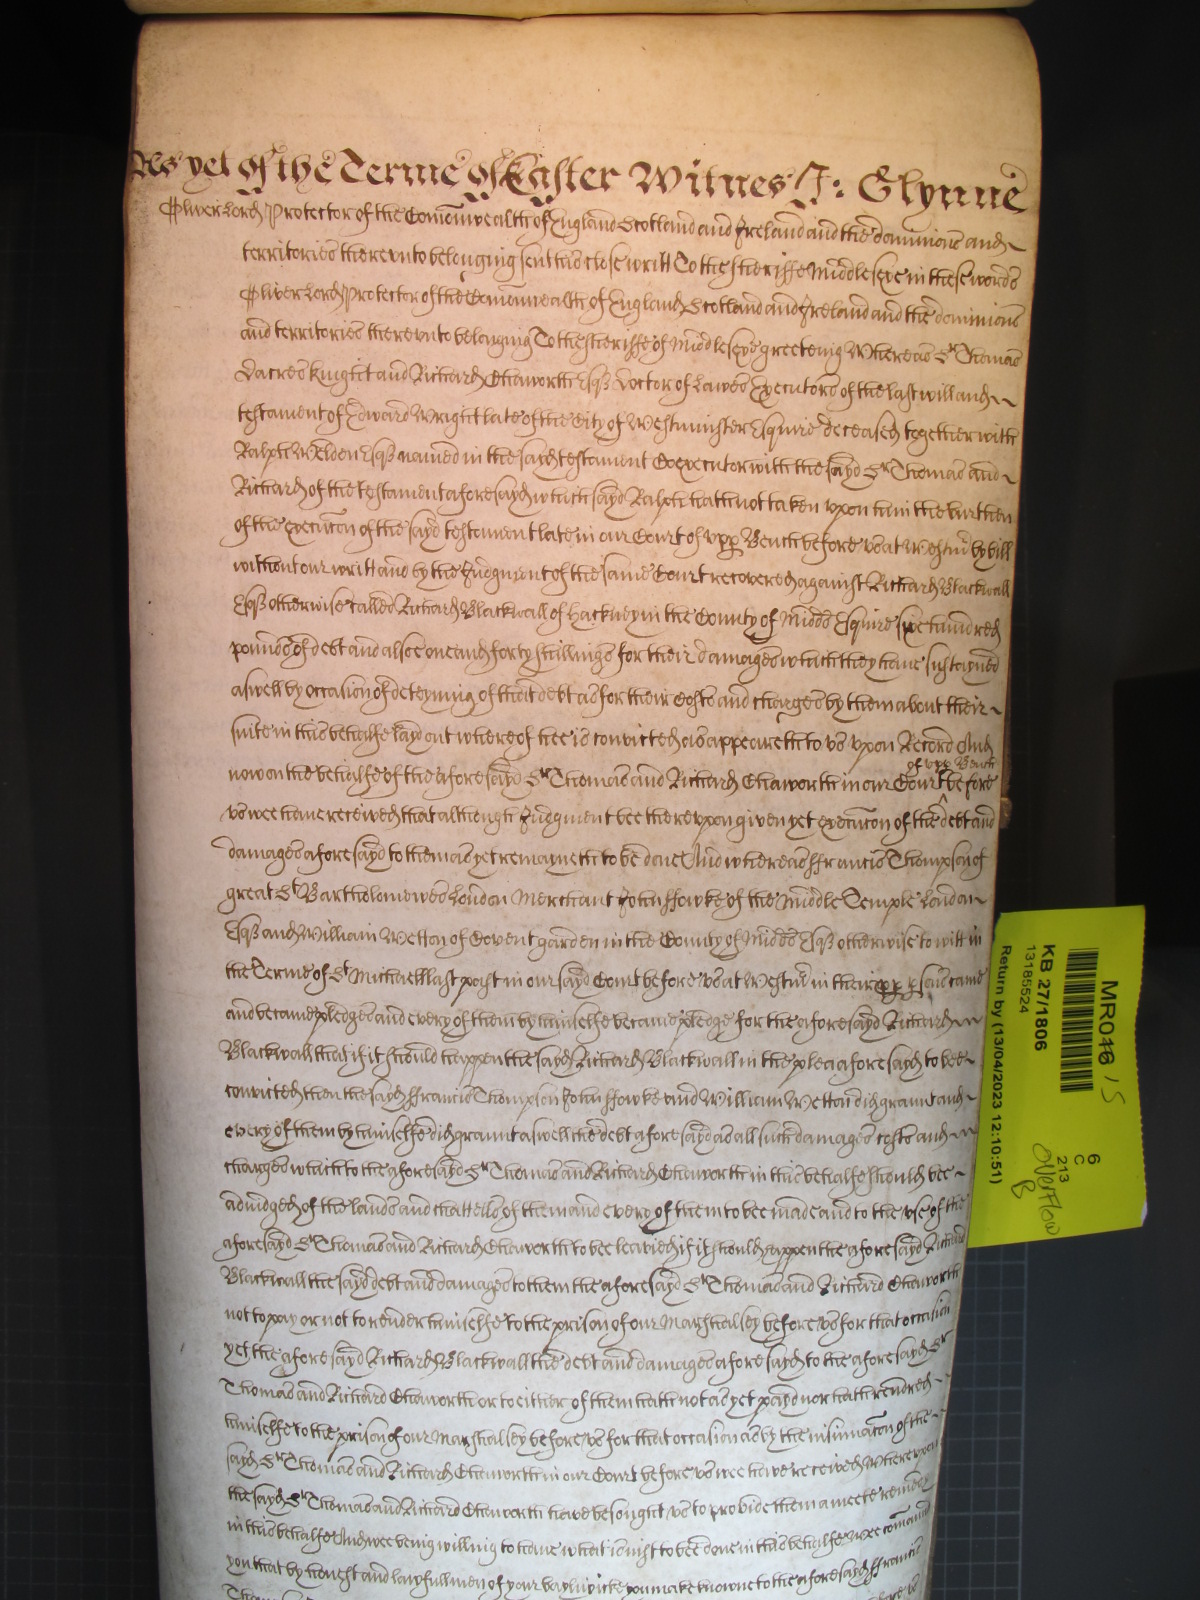 As yet of the Terme of Easter Witnes J: Glynne
Oliver Lord Protector of the Comonwealth of England Scotland and Ireland and the dominions and
territories thereunto belonging sent his close writt To the Sheriffe Middlesexe in these words
Oliver Lord Protector of the Comonwealth of England Scotland and Ireland and the dominions
and territories thereunto belonging To the Sheriffe of Middlesex greeteing Whereas Sr Thomas
Dacres knight and Richard Chaworth Esqr Doctor of Lawes Executors of the last will and
testament of Edward Wright late of the City of Westminster Esquire deceased together with
Ralph Weldon Esqr named in the sayd testament Coexecutor with the sayd Sr Thomas and
Richard of the testament aforesayd which sayd Ralph hath not taken upon him the burthen
of the execucon of the sayd testament late in our Court of upp Bench before us at Westmr by bill
without our writt and by the Judgment of the same Court recovered against Richard Blackwall
Esqr otherwise called Richard Blackwall of Hackney in the County of Midds Esquire six hundred
pounds of debt and alsoe one and forty shillings for their damages which they have sustayned
aswell by occasion of deteyning of that debt as for their Costs and charges by them about their
suite in this behalfe layd out whereof hee is convicted as appeareth to us upon Record And
now on the behalfe of the aforesayd Sr Thomas and Richard Chaworth in our Court of upp Bench before
us wee have received that although Judgment bee thereupon given yet execucon of the debt and
damages aforesayd to them as yet remayneth to be done And whereas ffrancis Thompson of
great St Bartholomewes London Merchant John ffowke of the Middle Temple London
Esqr and William Wetton of Covent garden in the County of Midds Esqr otherwise to witt in
the Terme of St Michaell last past in our sayd Court before us at Westmr in their sons came
and became pledges and every of them by himselfe became pledge for the aforesayd Richard
Blackwall that if it should happen the sayd Richard Blackwall in the plea aforesayd to bee
convicted then the sayd ffrancis Thompson John ffowke and William Wetton did graunt and
every of them by himselfe did graunt aswell the debt aforesayd as all such damages costs and
charges which to the aforesayd Sr Thomas and Richard Chaworth in this behalfe should bee
adiudged of the lands and chattells of them and every of them to bee made and to the use of the
aforesayd Sr Thomas and Richard Chaworth to bee leavied if it should happen the aforesayd Richard
Blackwall the sayd debt and damages to them the aforesayd Sr Thomas and Richard Chaworth
not to pay or not to render himselfe to the prison of our Marshalsey before us for that occasion
yet the aforesayd Richard Blackwall the debt and damages aforesayd to the aforesayd Sr
Thomas and Richard Chaworth or to either of them hath not as yet payd nor hath rendred
himselfe to the prison of our Marshalsey before us for that occasion as by the insinuacon of the
sayd Sr Thomas and Richard Chaworth in our Court before us wee have received Whereupon
the sayd Sr Thomas and Richard Chaworth have besought us to provide them a meete remedy
in this behalfe And wee being willing to have what is iust to bee done in this behalfe Wee comand
you that by honest and lawfull men of your baylywicke you make knowne to the aforesayd ffrancis
MR046 15
KB 27/1806
13185524
Return by (13/04/2023 12:10:51)
6
C
213
overflow
B